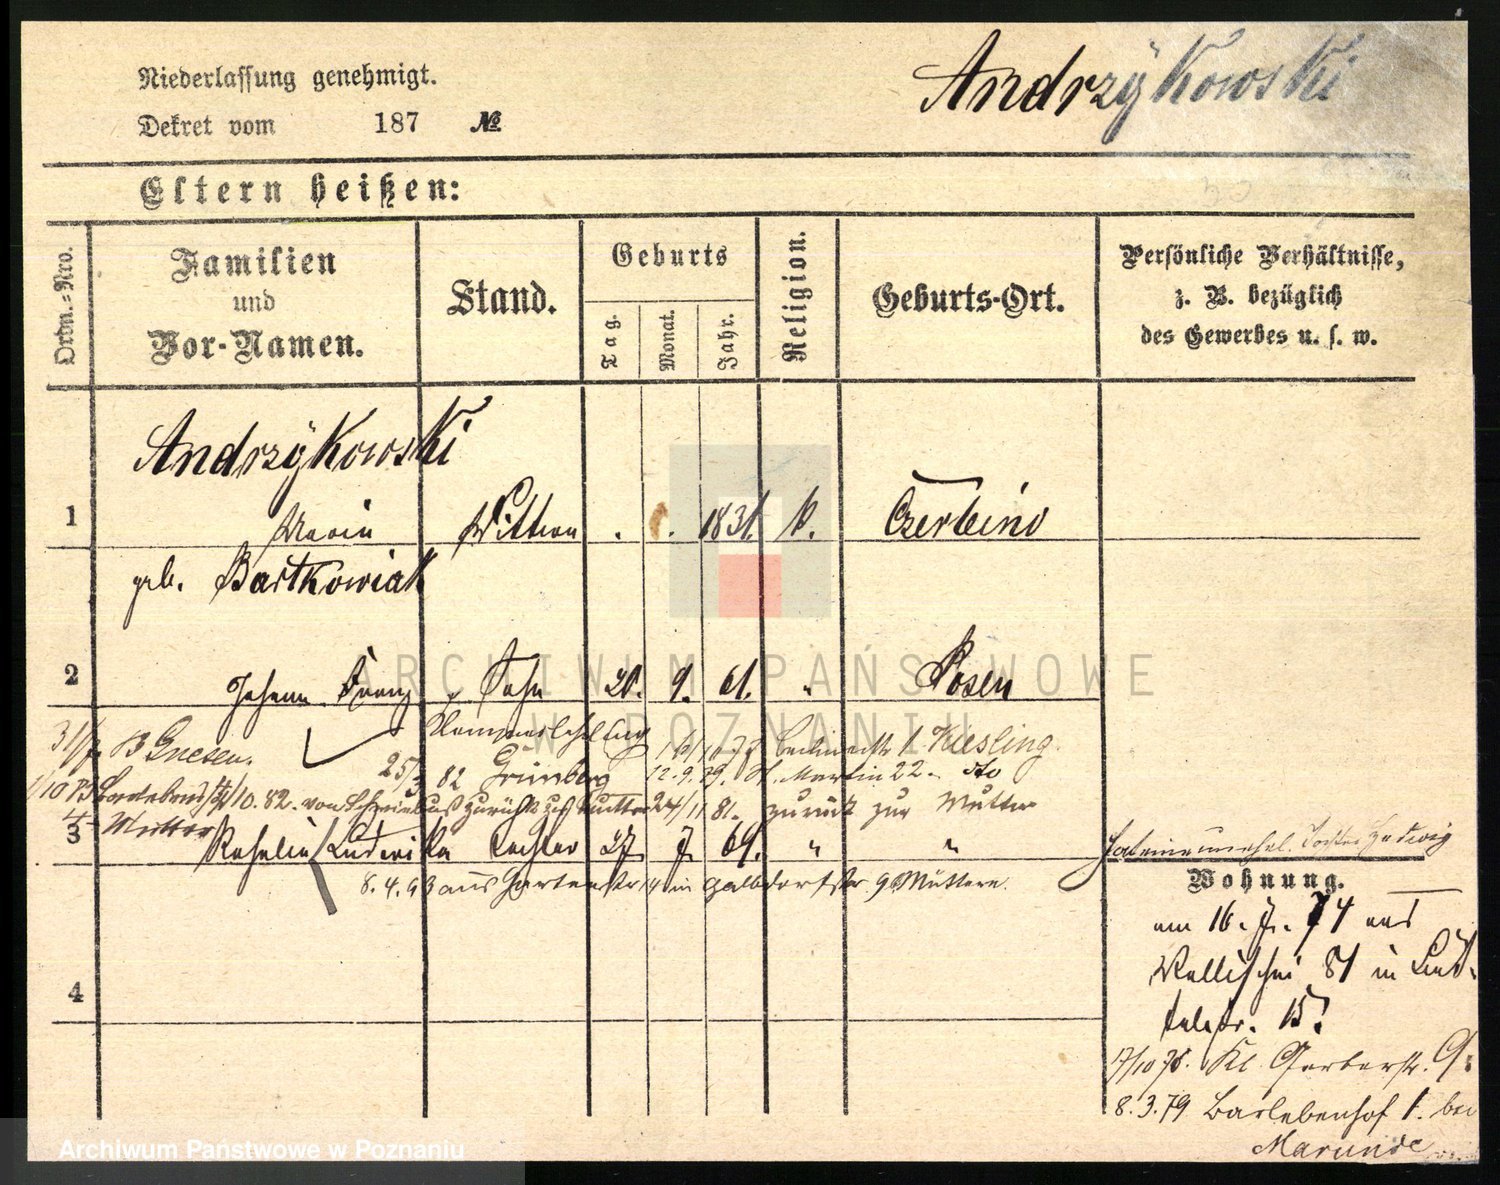 Niederlassung genehmigt.
Andrzÿkowski
Dekret vom 187 №
Eltern heißen:
Ordn.=Nro.
Familien
und
Vor-Namen.
Stand.
Geburts
Tag.
Monat.
Jahr.
Religion.
Geburts-Ort.
Persönliche Verhältnisse,
z. B. bezüglich
des Gewerbes u. s. w.
Andrzÿkowski
1 Maria Wittwe . . 1831. k. Czerleino
geb. Bartkowiak
2 Johann Franz Sohn 20. 9. 61. " Posen
B Gnesen.
1. Kiesling.
25/3 82 Grünberg 12.9.79. St. Martin 22. dto
10. 82. von zurück zur Mutter 24/11 81. zurück zur Mutter
Mutter
3 Rosalie Ludwika Tochter 27. 7. 69. " "
Tochter Hedwig
8.4.93 aus Gartenstr 14 in Halbdorfstr. 9
Wohnung.
am 16. 7. 74 aus
Wallischei 81 in
15.
4
7/10 78. Kl Gerberstr. 9.
8.3.79 Barlebenhof 1. bei
Marunde
ARCHIWUM PAŃSTWOWE
W POZNANIU
Archiwum Państwowe w Poznaniu